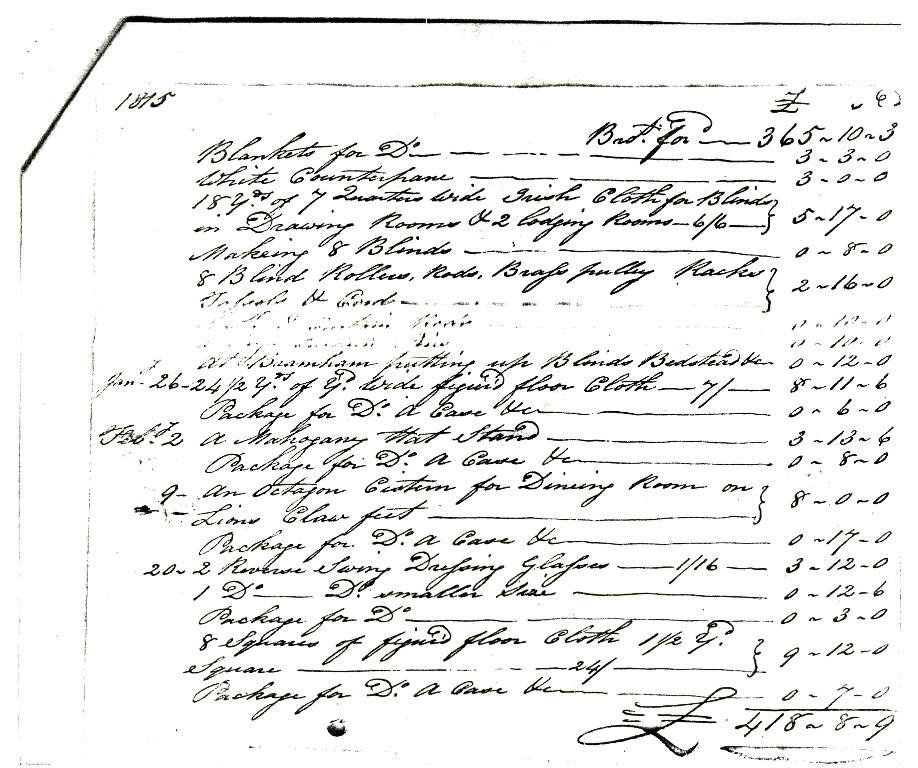 1815 £ s D
Bro.t for.d — 365 ~ 10 ~ 3
Blankets for D.o — 3 ~ 3 ~ 0
White Counterpane — 3 ~ 0 ~ 0
18 Y.ds of 7 Quarters wide Irish Cloth for Blinds
in Drawing Rooms & 2 lodging Rooms — 6/6 — } 5 ~ 17 ~ 0
Makeing 8 Blinds — 0 ~ 8 ~ 0
8 Blind Rollers, Rods, Brass pulley Racks
Tassels & Cord — } 2 ~ 16 ~ 0
Rods 0 ~ 10 ~ 0
0 ~ 10 ~ 0
At Bramham putting up Blinds Bedstead &c — 0 ~ 12 ~ 0
Jan.y 26 - 24 1/2 Y.ds of Y.d wide figur'd floor Cloth — 7/ — 8 ~ 11 ~ 6
Package for D.o A Case &c — 0 ~ 6 ~ 0
Feb.y 2 A Mahogany Hat Stand — 3 ~ 13 ~ 6
Package for D.o A Case &c — 0 ~ 8 ~ 0
9 - An Octagon Cistern for Dineing Room on
Lions Claw feet — } 8 ~ 0 ~ 0
Package for D.o A Case &c — 0 ~ 17 ~ 0
20 ~ 2 Reverse Swing Dressing Glasses — 1/16 — 3 ~ 12 ~ 0
1 D.o — D.o smaller Size — 0 ~ 12 ~ 6
Package for D.o — 0 ~ 3 ~ 0
8 Squares of figur'd floor Cloth 1 1/2 Y.d
Square — 24/ — } 9 ~ 12 ~ 0
Package for D.o A Case &c — 0 ~ 7 ~ 0
£ 418 ~ 8 ~ 9